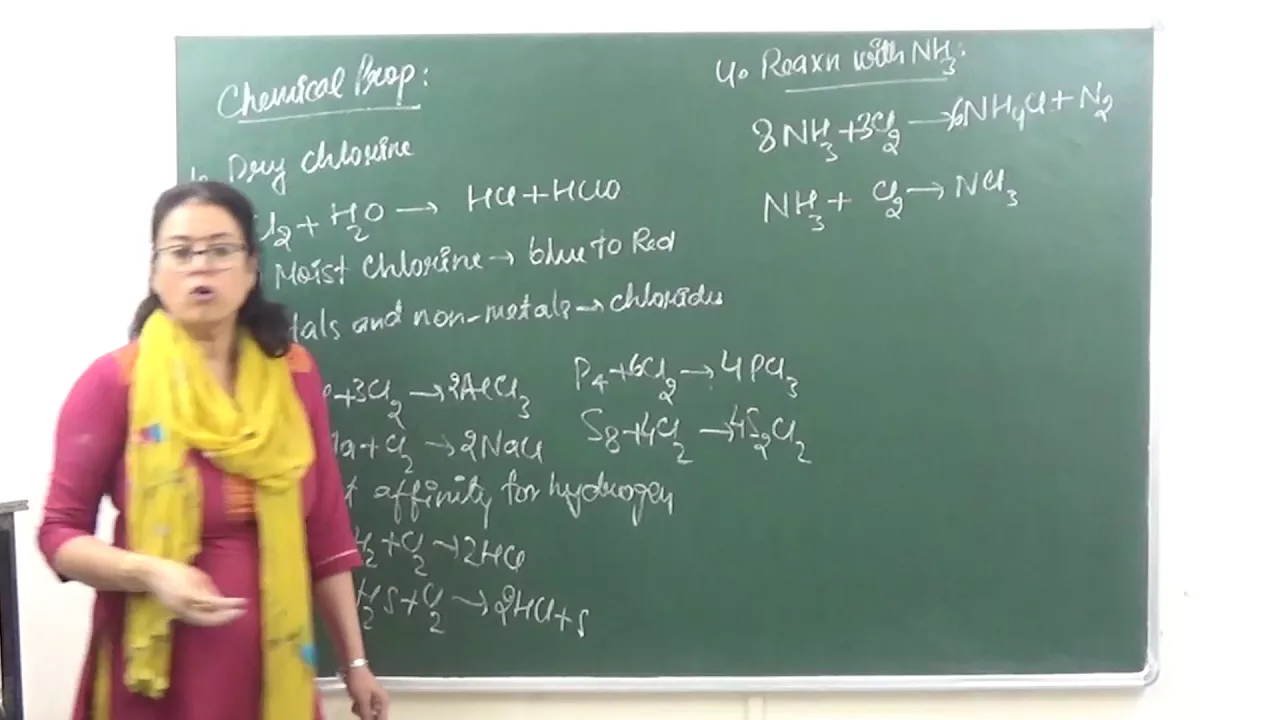 Chemical Prop:
1. Dry chlorine
Cl2 + H2O → HCl + HClO
Moist chlorine → blue to Red
tals and non-metals → chlorides
+ 3Cl2 → 2AlCl3
P4 + 6Cl2 → 4PCl3
a + Cl2 → 2NaCl
S8 + 4Cl2 → 4S2Cl2
t affinity for hydrogen
H2 + Cl2 → 2HCl
H2S + Cl2 → 2HCl + S
4. Reaxn with NH3:
8NH3 + 3Cl2 → 6NH4Cl + N2
NH3 + Cl2 → NCl3